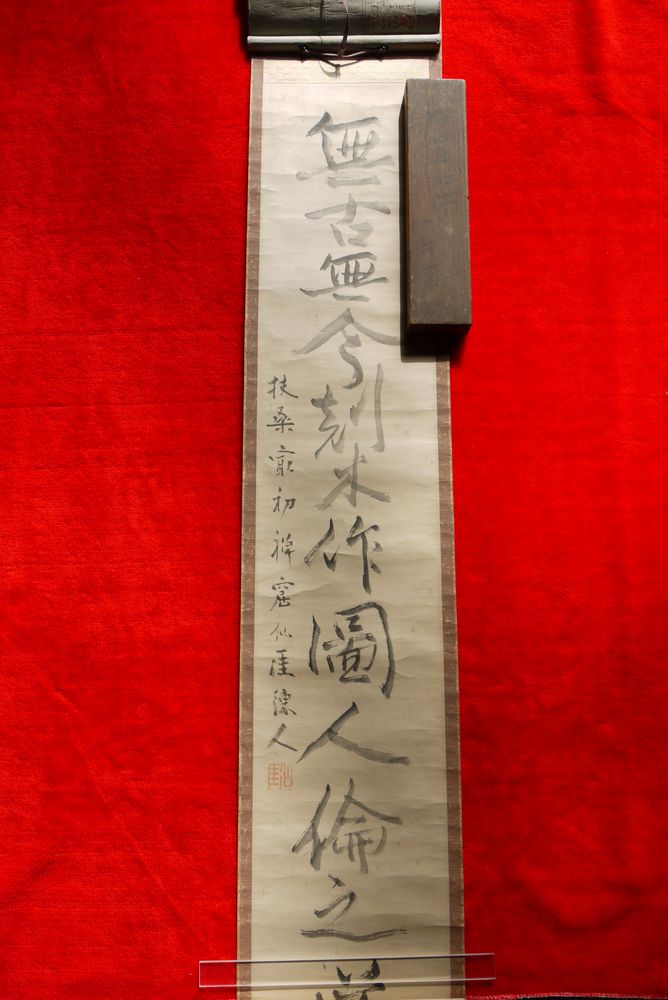 無古無今刻木作圖人倫之
扶桑最初禅窟仙厓陳人
仙厓